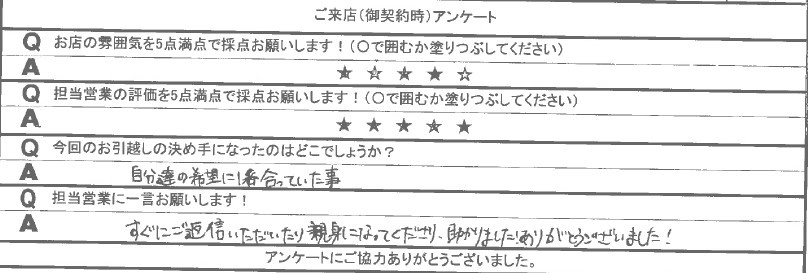 ご来店（御契約時）アンケート
Q お店の雰囲気を5点満点で採点お願いします！（〇で囲むか塗りつぶしてください）
A ★ ☆ ★ ★ ☆
Q 担当営業の評価を5点満点で採点お願いします！（〇で囲むか塗りつぶしてください）
A ★ ★ ★ ★ ★
Q 今回のお引越しの決め手になったのはどこでしょうか？
A 自分達の希望に1番合っていた事
Q 担当営業に一言お願いします！
A すぐにご返信いただいたり親身になってくださり、助かりました！ありがとうございました！
アンケートにご協力ありがとうございました。